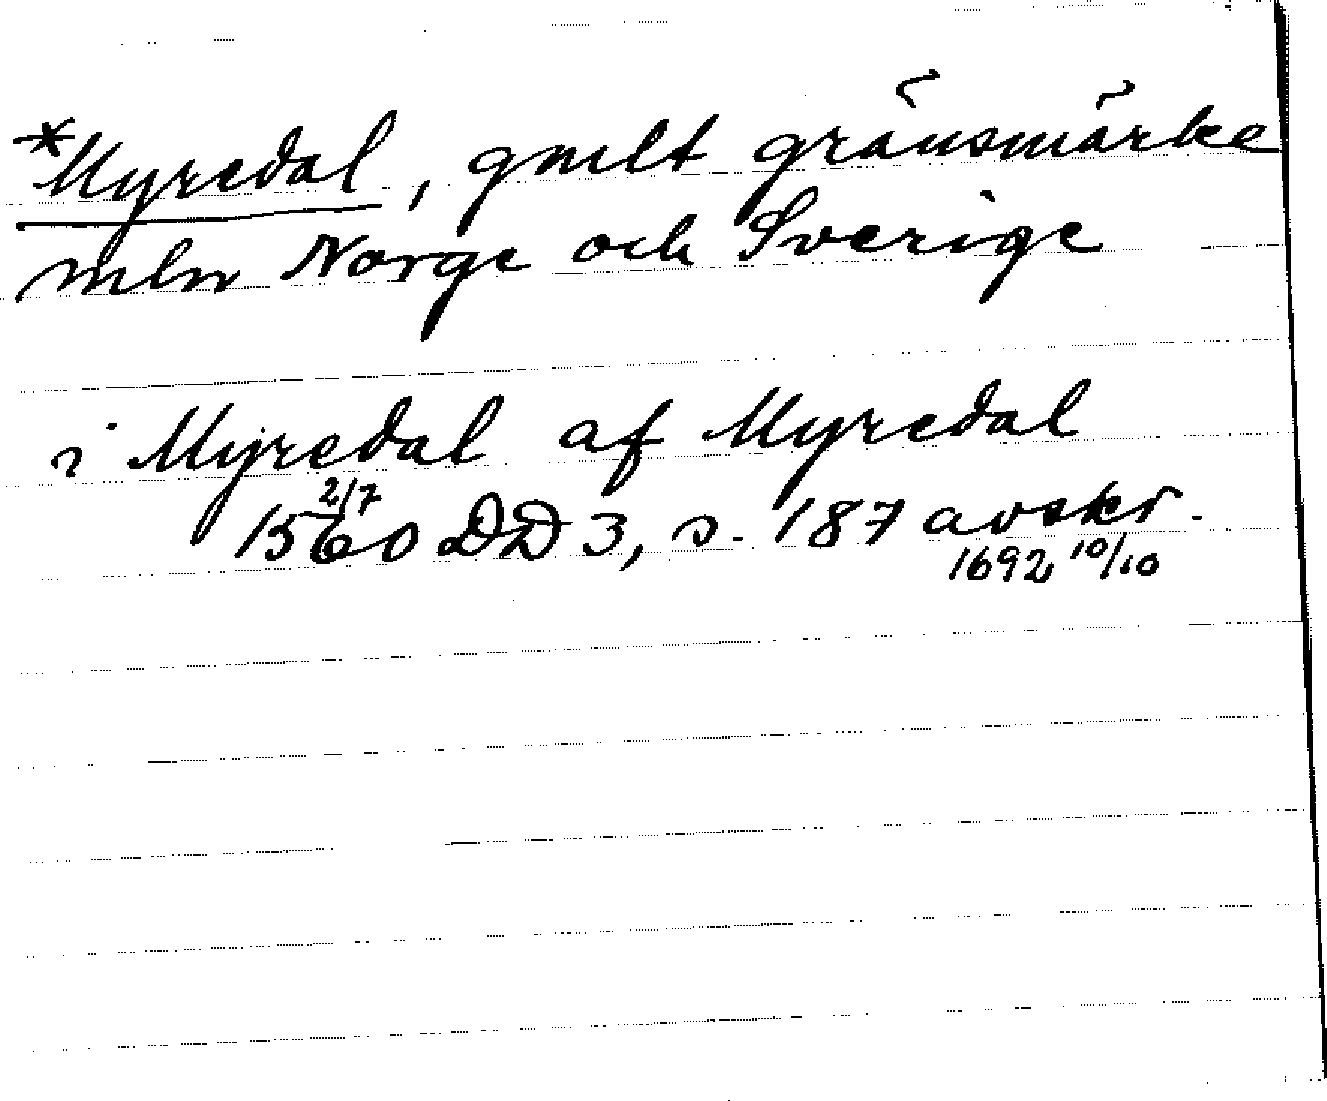 *Myredal, gmlt gränsmärke
mln Norge och Sverige
i Myredal af Myredal
1560 2/7 DD 3, s. 187 avskr.
1692 10/10